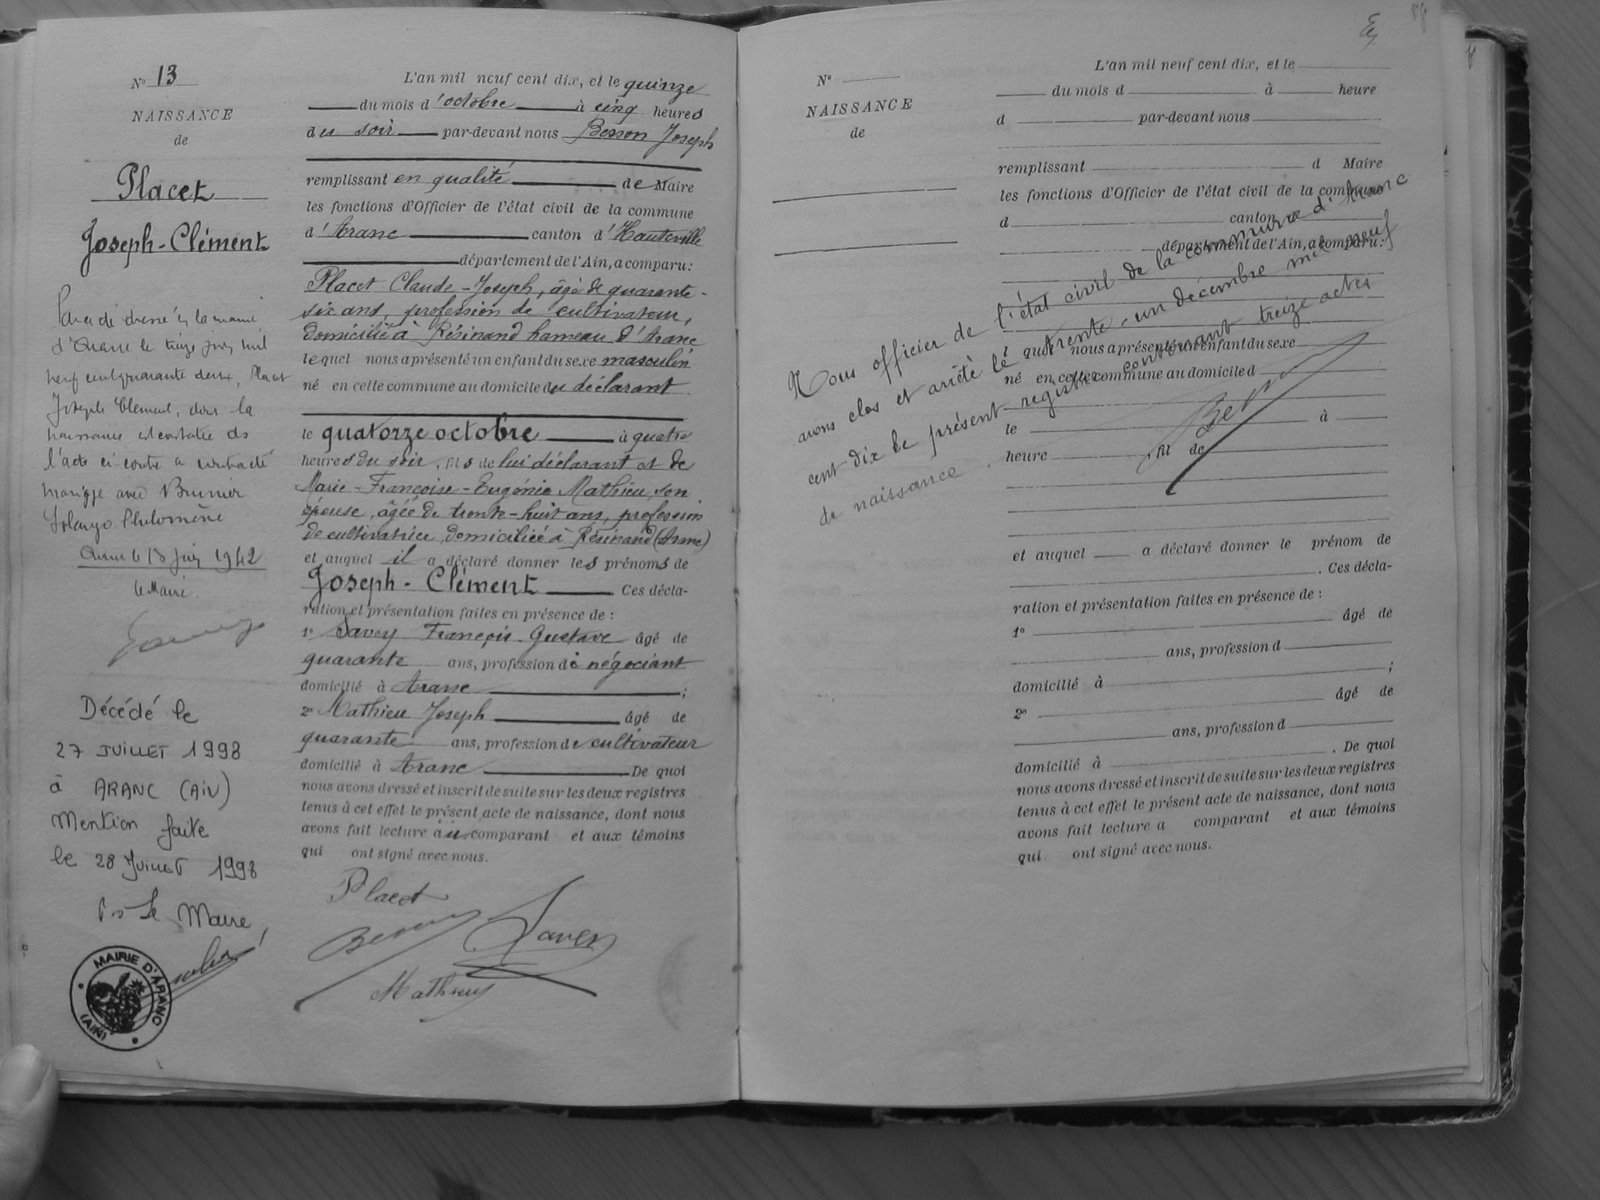 N° 13
NAISSANCE
de
Placet
Joseph-Clément
dressé en la mairie
d'Aranc le treize juin mil
neuf cent quarante deux, Placet
Joseph Clément, dont la
naissance est constatée
l'acte ci-contre a contracté
mariage avec Brunier
Solange Philomène
Aranc le 13 Juin 1942
le Maire
Décédé le
27 JUILLET 1998
à ARANC (AiN)
Mention faite
le 28 Juillet 1998
Le Maire,
MAIRIE D'ARANC
(AIN)
L'an mil neuf cent dix, et le quinze
du mois d'octobre à cinq heures
du soir par-devant nous Besson Joseph
remplissant en qualité de Maire
les fonctions d'Officier de l'état civil de la commune
d'Aranc canton d'Hauteville
département de l'Ain, a comparu:
Placet Claude-Joseph, âgé de quarante-
six ans, profession de cultivateur,
domicilié à Résinand hameau d'Aranc
lequel nous a présenté un enfant du sexe masculin
né en cette commune au domicile du déclarant
le quatorze octobre à quatre
heures du soir, fils de lui déclarant et de
Marie-Françoise-Eugénie Mathieu, son
épouse, âgée de trente-huit ans, profession
de cultivatrice, domiciliée à Résinand (Aranc)
et auquel il a déclaré donner les prénoms de
Joseph-Clément Ces décla-
ration et présentation faites en présence de :
1° Savey François-Gustave âgé de
quarante ans, profession de négociant
domicilié à Aranc ;
2° Mathieu Joseph âgé de
quarante ans, profession de cultivateur
domicilié à Aranc De quoi
nous avons dressé et inscrit de suite sur les deux registres
tenus à cet effet le présent acte de naissance, dont nous
avons fait lecture au comparant et aux témoins
qui ont signé avec nous.
Placet
Besson
Savey
Mathieu
N°
NAISSANCE
de
L'an mil neuf cent dix, et le
du mois d à heure
d par-devant nous
remplissant d Maire
les fonctions d'Officier de l'état civil de la commune
d canton
département de l'Ain, a comparu:
quel nous a présenté un enfant du sexe
né en cette commune au domicile d
le à
heure , fil de
et auquel a déclaré donner le prénom de
. Ces décla-
ration et présentation faites en présence de :
1° âgé de
ans, profession d
domicilié à ;
2° âgé de
ans, profession d
domicilié à . De quoi
nous avons dressé et inscrit de suite sur les deux registres
tenus à cet effet le présent acte de naissance, dont nous
avons fait lecture a comparant et aux témoins
qui ont signé avec nous.
Nous officier de l'état civil de la commune d'Aranc
avons clos et arrêté le trente-un décembre mil neuf
cent dix le présent registre contenant treize actes
de naissance.